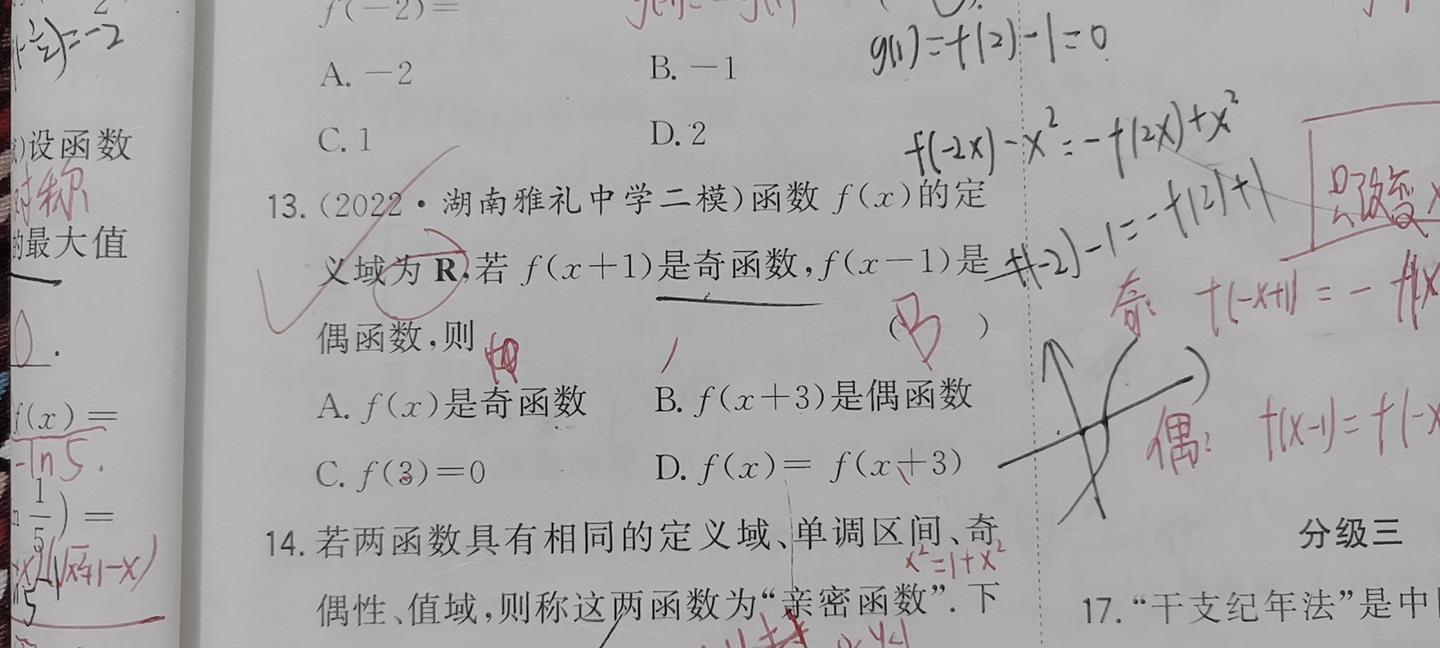 f(-2)=
A. -2 B. -1
C. 1 D. 2
13. (2022·湖南雅礼中学二模)函数 f(x)的定
义域为 R,若 f(x+1)是奇函数,f(x-1)是
偶函数,则 ( B )
A. f(x)是奇函数 B. f(x+3)是偶函数
C. f(3)=0 D. f(x)= f(x+3)
14. 若两函数具有相同的定义域、单调区间、奇
x²=1+x²
偶性、值域,则称这两函数为“亲密函数”. 下
=-2
设函数
对称
的最大值
0.
f(x)=
-ln5.
1/5) =
g(1)=f(2)-1=0
f(-2x)-x²=-f(2x)+x²
f(-2)-1=-f(2)+1
只改变x
奇: f(-x+1)=-f(x
偶: f(x-1)=f(-x
分级三
17. “干支纪年法”是中